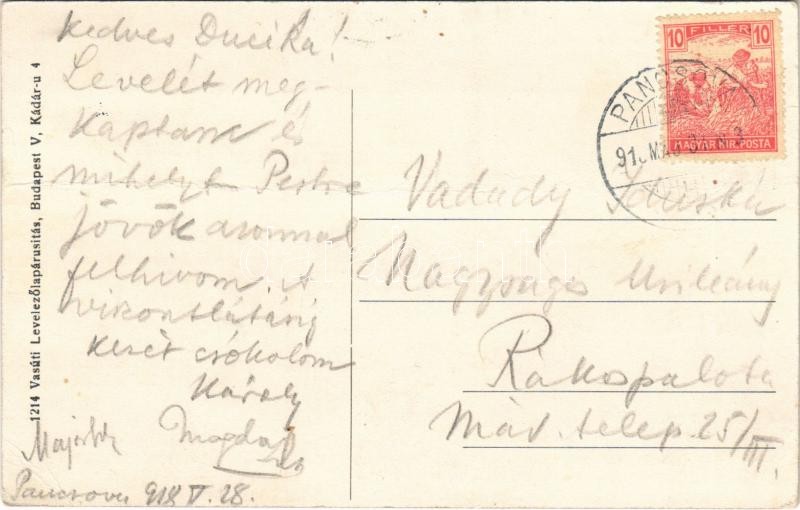 Kedves Ducika!
Levelét meg-
kaptam és
mihelyt Pestre
jövök azonnal
felhivom. A
viszontlátásig
kezét csókolom
Károly
Magda
Pancsova 918 V. 28.
1214 Vasúti Levelezőlapárusitás, Budapest V, Kádár-u 4
10 FILLÉR 10
MAGYAR KIR. POSTA
PANCSOVA
Vadady
Nagyságos Urileány
Rákospalota
Máv. telep 25/III.